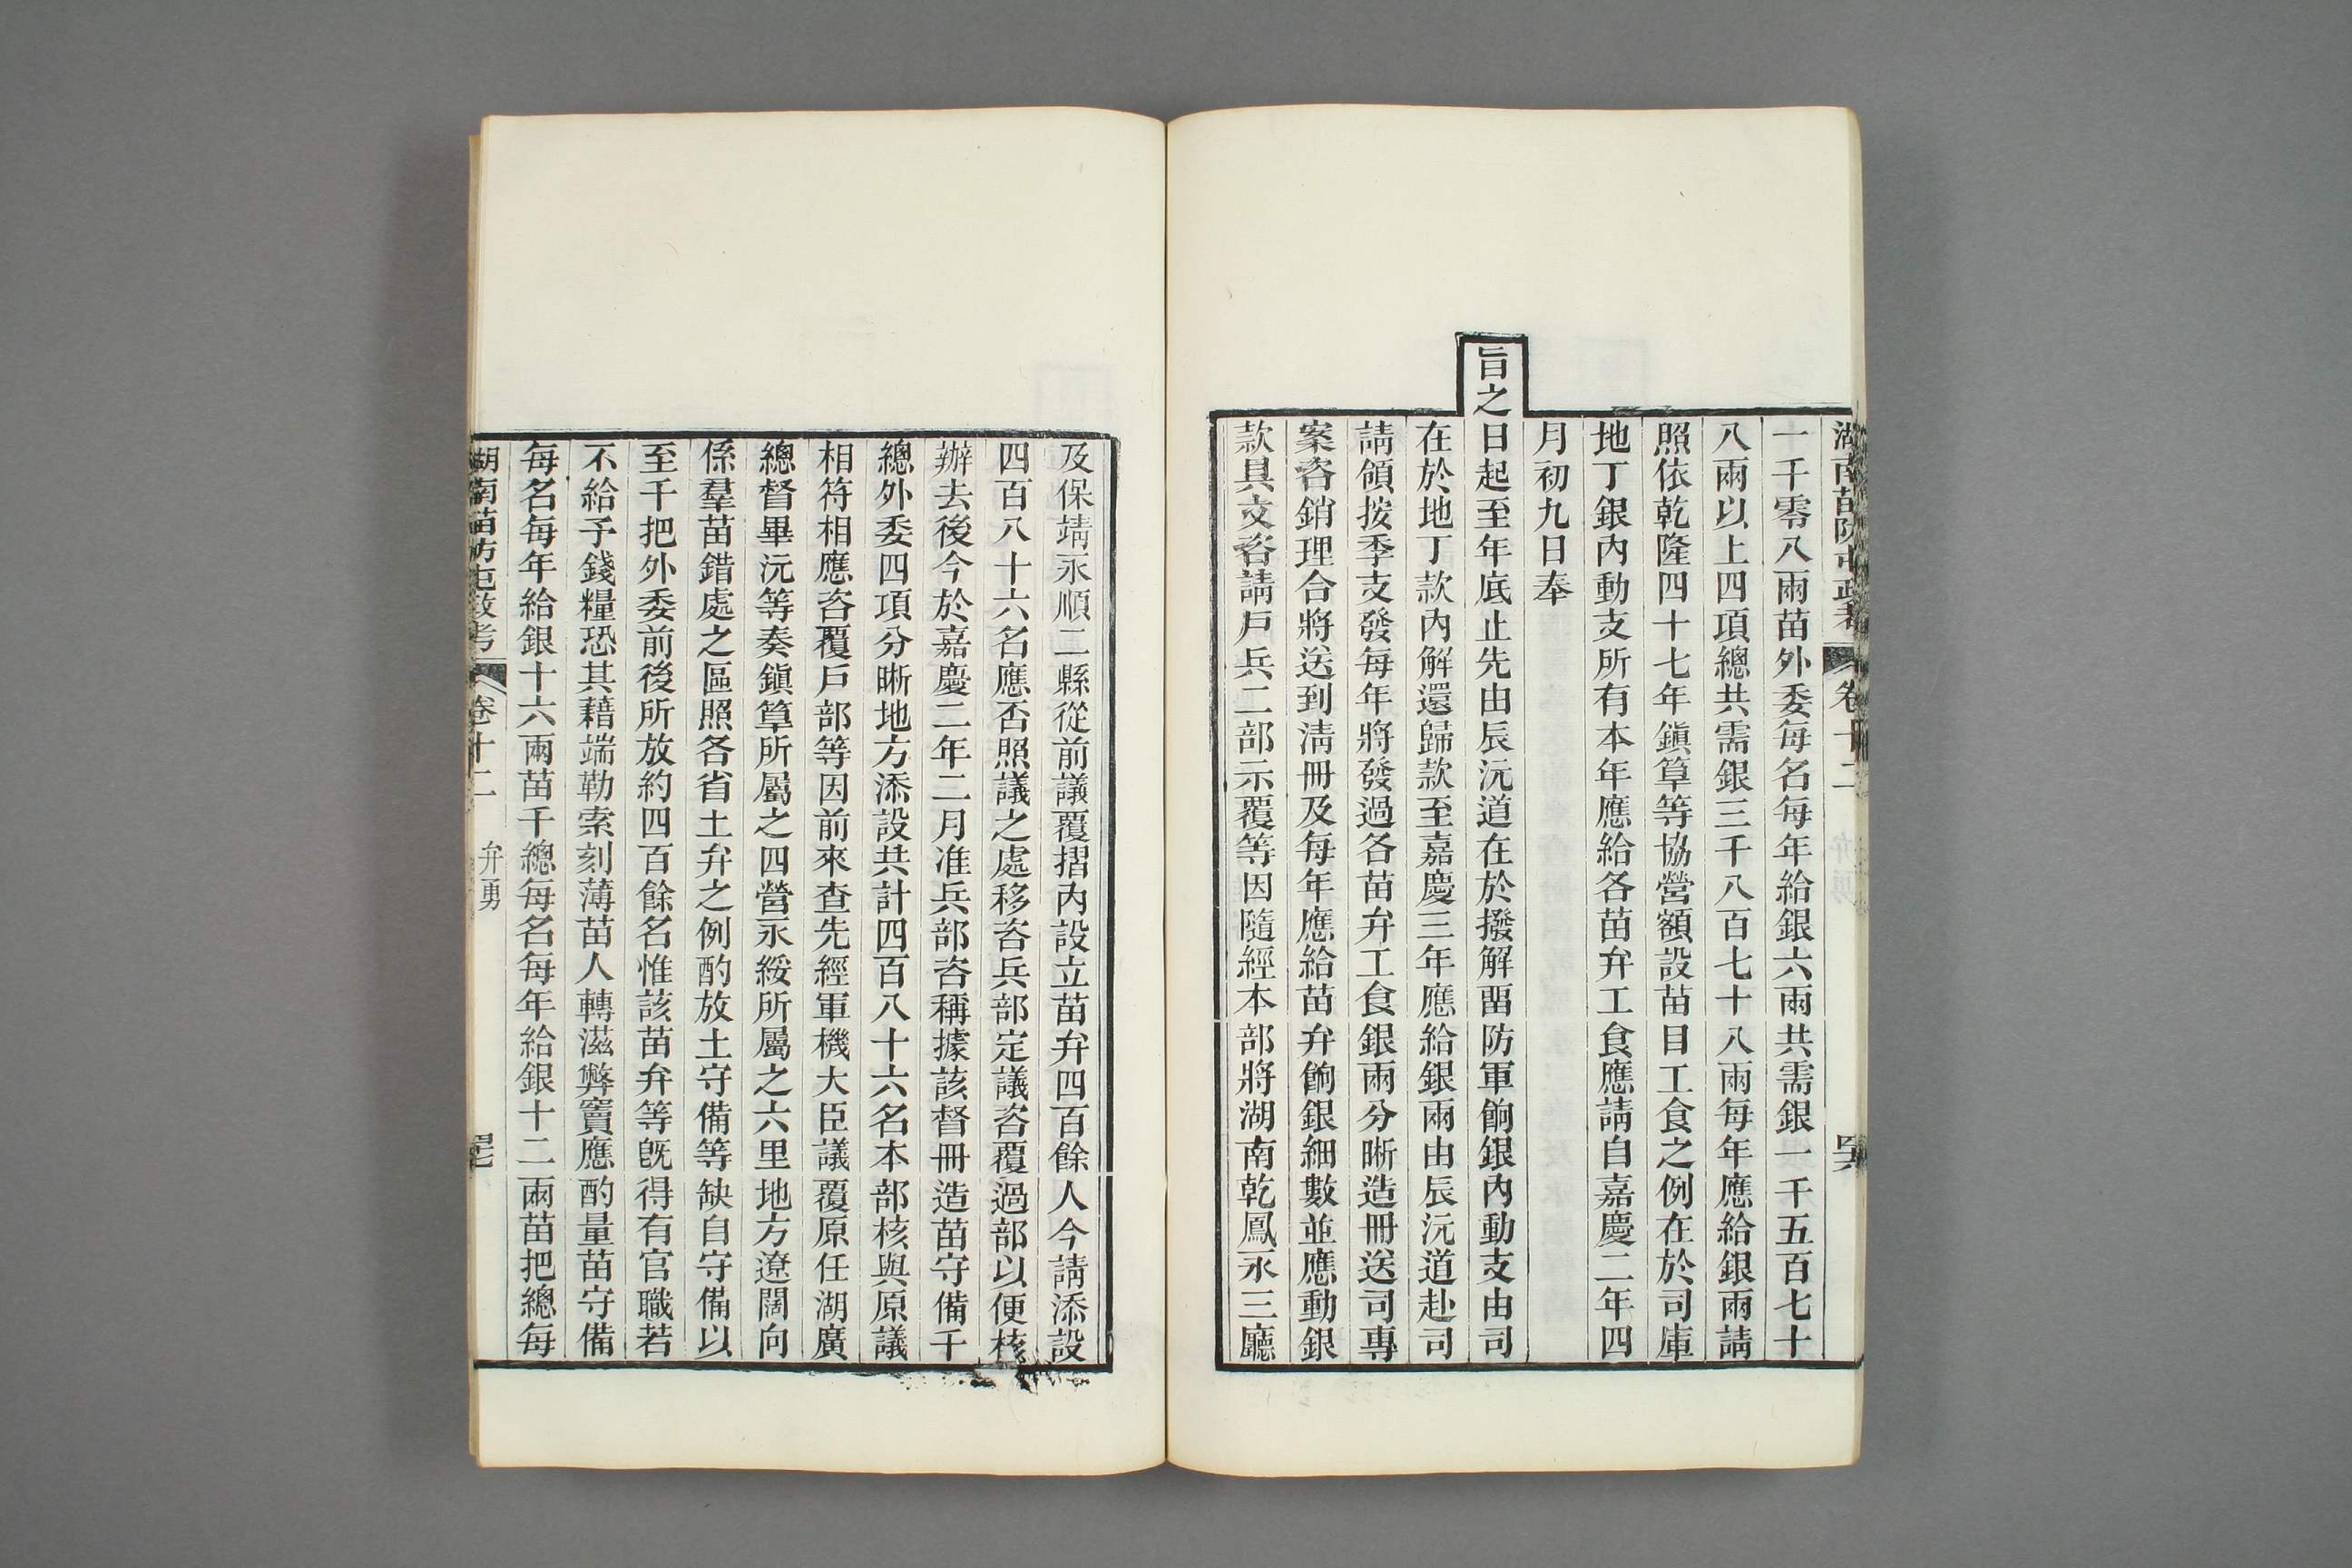 湖南苗防屯政考 卷十二
一千零八兩苗外委每名每年給銀六兩共需銀一千五百七十
八兩以上四項總共需銀三千八百七十八兩每年應給銀兩請
照依乾隆四十七年鎭筸等協營額設苗目工食之例在於司庫
地丁銀內動支所有本年應給各苗弁工食應請自嘉慶二年四
月初九日奉
旨之日起至年底止先由辰沅道在於撥解畱防軍餉銀內動支由司
在於地丁款內解還歸款至嘉慶三年應給銀兩由辰沅道赴司
請領按季支發每年將發過各苗弁工食銀兩分晰造冊送司專
案咨銷理合將送到淸冊及每年應給苗弁餉銀細數並應動銀
款具文咨請戶兵二部示覆等因隨經本部將湖南乾鳳永三廳
及保靖永順二縣從前議覆摺內設立苗弁四百餘人今請添設
四百八十六名應否照議之處移咨兵部定議咨覆過部以便核
辦去後今於嘉慶二年二月准兵部咨稱據該督冊造苗守備千
總外委四項分晰地方添設共計四百八十六名本部核與原議
相符相應咨覆戶部等因前來查先經軍機大臣議覆原任湖廣
總督畢沅等奏鎭筸所屬之四營永綏所屬之六里地方遼闊向
係羣苗錯處之區照各省土弁之例酌放土守備等缺自守備以
至千把外委前後所放約四百餘名惟該苗弁等旣得有官職若
不給予錢糧恐其藉端勒索刻薄苗人轉滋弊竇應酌量苗守備
每名每年給銀十六兩苗千總每名每年給銀十二兩苗把總每
湖南苗防屯政考 卷十二 弁勇